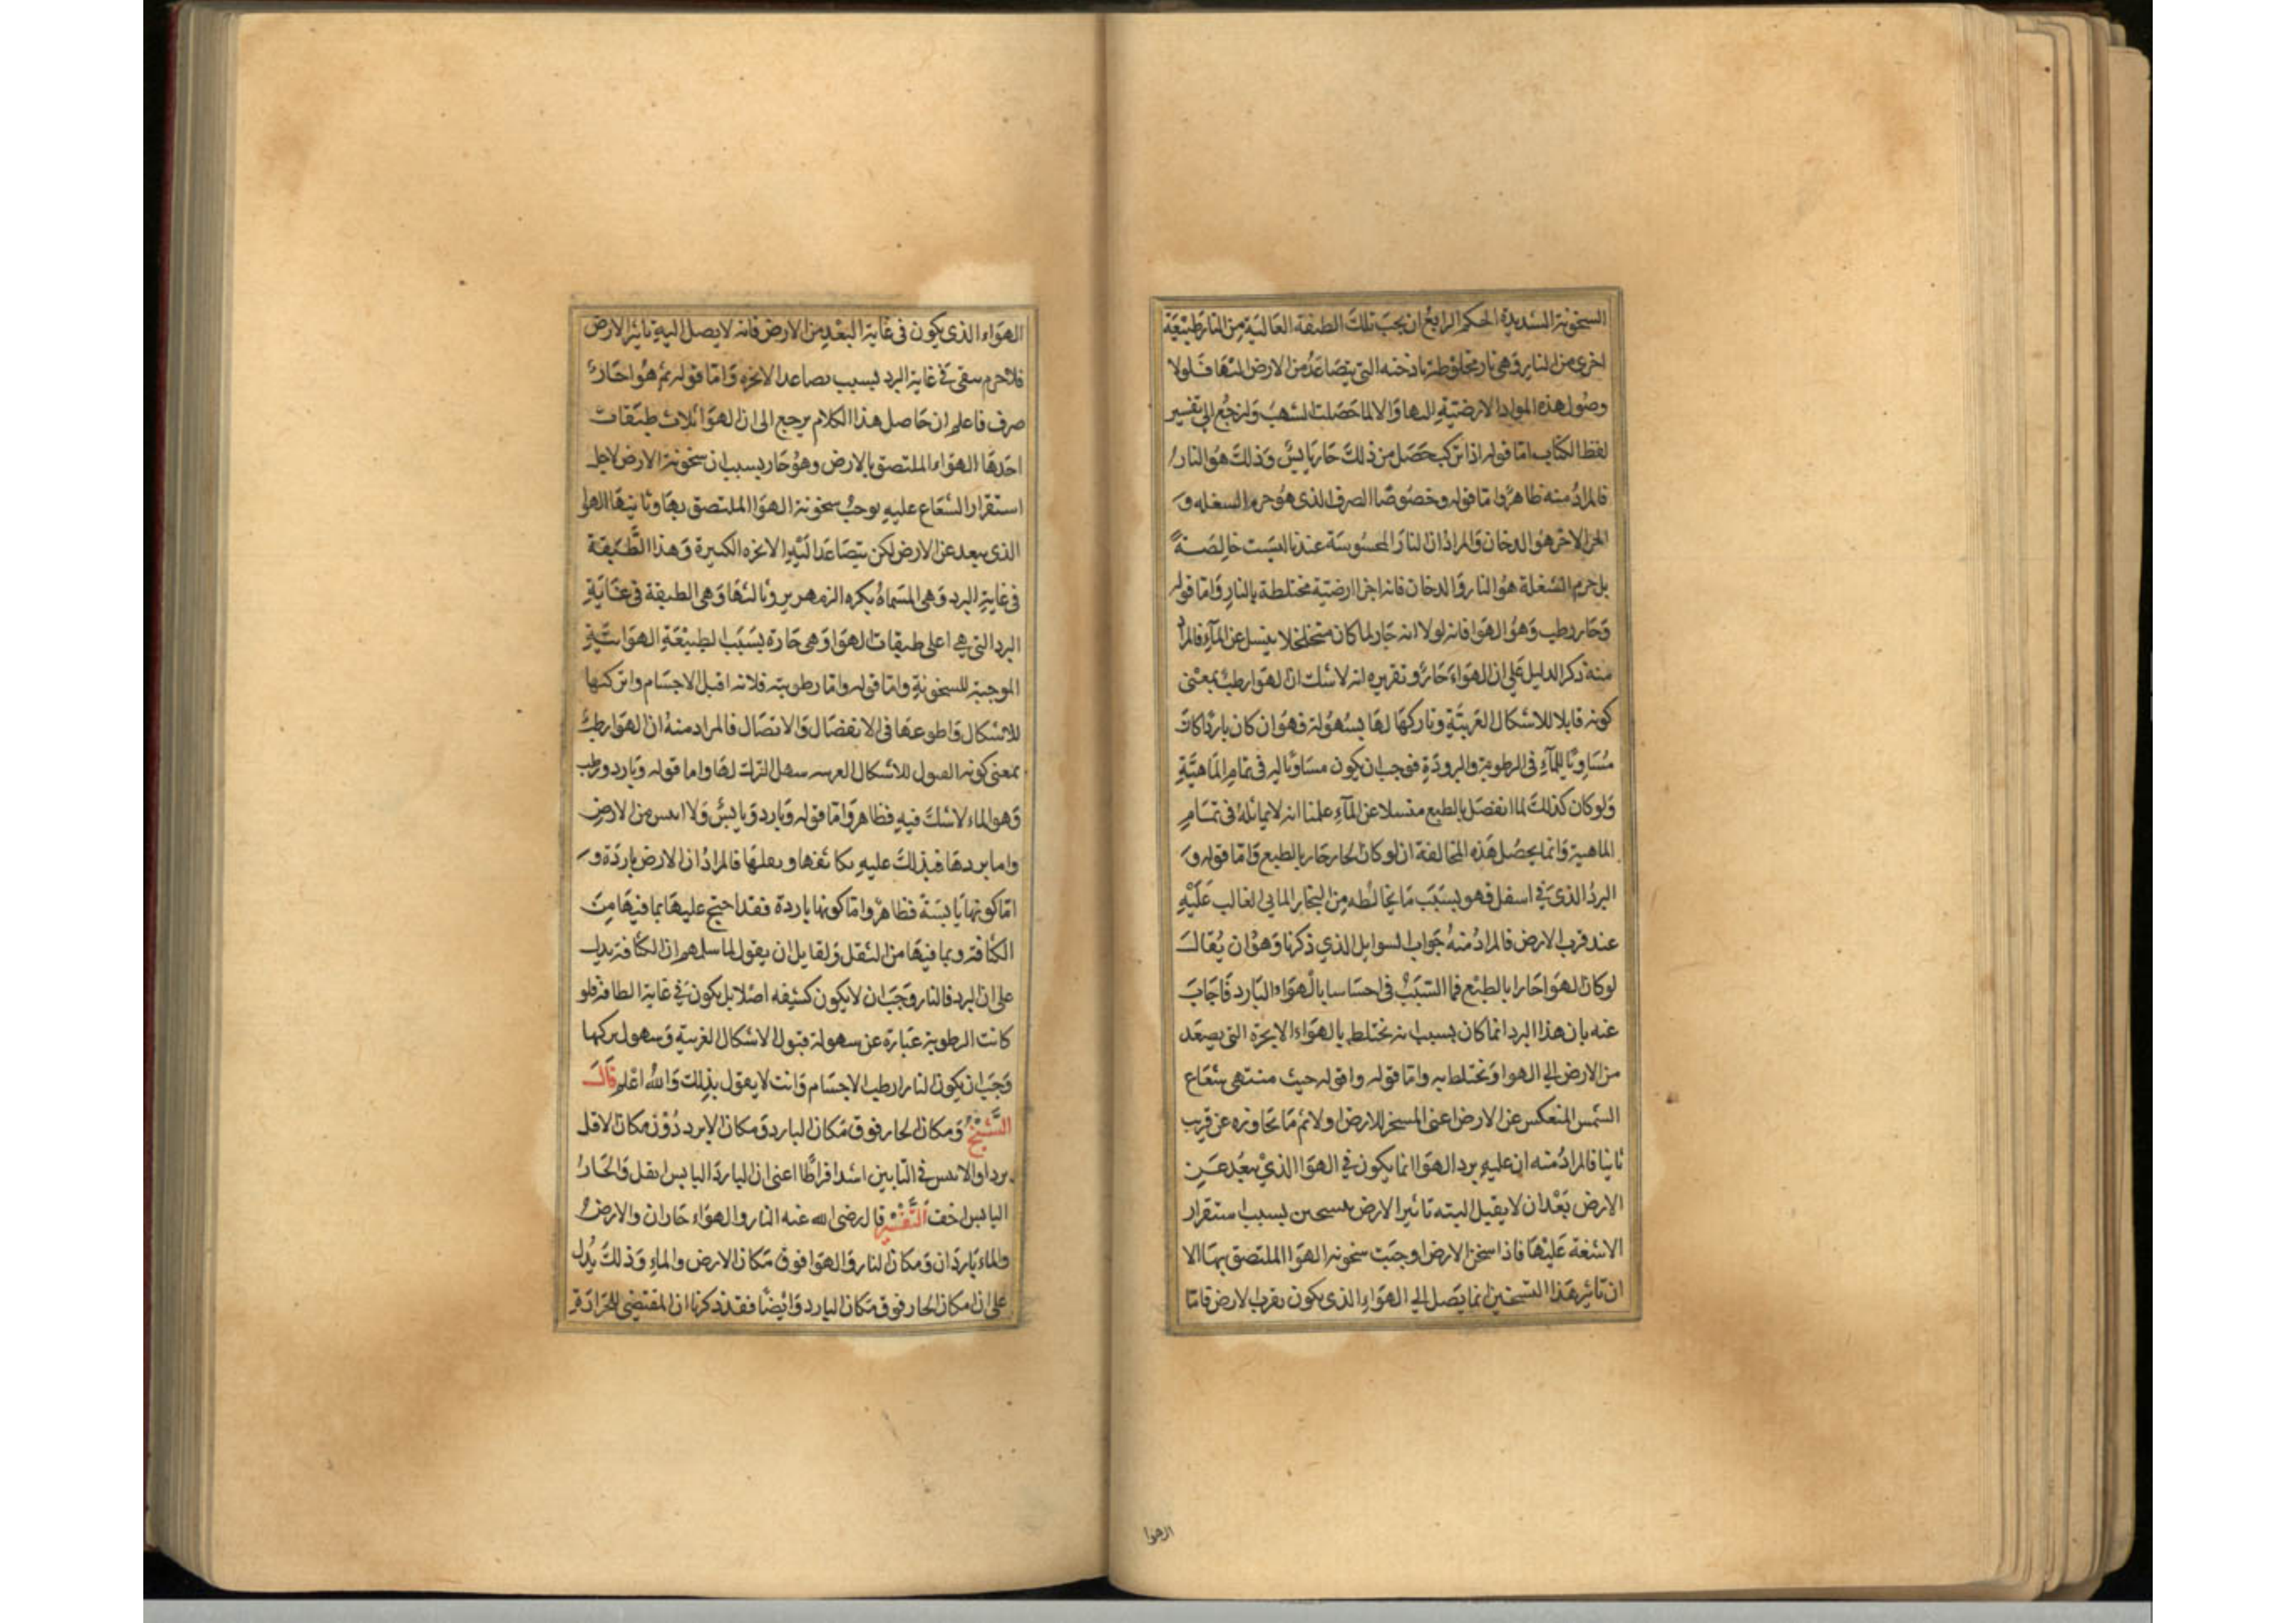 السخونة الشديدة الحكم الرابع ان يجب تلك الطبقة العالية من النار طبيعة
اخرى من النار وهى نار مخلوطة بادخنه التى يتصاعد من الارض اليها فلولا
وصول هذه المواد الارضيّة اليها والا لما حصلت الشهب ولنرجع الى تفسير
لفظ الكتاب اما قوله اذا تركب حصل من ذلك حار يابس وذلك هو النار
فالمراد منه ظاهر واما قوله وخصوصًا الصرف الذى هو جرم الشعله و
الجزا الاخر هو الدخان والمراد ان النار المحسوسة عندنا ليست خالصة
بل جرم الشعلة هو النار والدخان فانه اجزا ارضيّة مختلطة بالنار واما قوله
وحار رطب وهو الهوا فانه لولا انه حار لما كان متخلخلا ينسل عن المآء فالمراد
منه ذكر الدليل على ان الهواء حار وتقريره انه لا شك ان الهوا رطب بمعنى
كونه قابلا للاشكال الغريبة وتاركها لها بسهولة فهو ان كان باردا كان
مساويًا للمآء فى الرطوبة والبرودة فوجب ان يكون مساويا له فى تمام الماهيّة
ولو كان كذلك لما انفصل بالطبع منسلا عن المآء علمنا انه لا يماثله فى تمام
الماهية وانما يحصل هذه المخالفة ان لو كان الحار حار بالطبع واما قوله و
البرد الذى فى اسفل فهو بسبب ما يخالطه من البخار المايى الغالب عليه
عند قرب الارض فالمراد منه جواب السوايل الذي ذكرنا وهو ان يقال
لو كان الهوا حارا بالطبع فما السبب فى احساسنا بالهواء البارد فاجاب
عنه بان هذا البرد انما كان بسبب انه تختلط بالهواء الابخرة التى يصعد
من الارض الى الهوا وتختلط به واما قوله واقوله حيث منتهى شعاع
الشمس المنعكس عن الارض اعنى المسخن للارض اولا ثم ما تجاوزه عن قريب
ثانيا فالمراد منه ان عليه برد الهوا انما يكون فى الهوا الذي بعد عن
الارض بعد ان لا يقبل البته تاثير الارض بسبب استقرار
الاشعة عليها فاذا سخن الارض اوجبت سخونه الهوا الملتصق بها الا
ان تاثير هذا التسخين انما يصل الى الهواء الذى يكون بقرب الارض فاما
الهوا
الهواء الذى يكون فى غاية البعد من الارض فانه لا يصل اليه تاثير الارض
فلاجرم يبقى فى غاية البرد بسبب تصاعد الابخره واما قوله ثم هوا حار
صرف فاعلم ان حاصل هذا الكلام يرجع الى ان الهوا ثلاث طبقات
احدها الهواء الملتصق بالارض وهو حار بسبب ان سخونة الارض لاجل
استقرار الشعاع عليه يوجب سخونة الهوا الملتصق بها وثانيها الهوا
الذى يبعد عن الارض لكن يتصاعد اليه الابخره الكبيرة وهذا الطبقة
فى غاية البرد وهى المسماة بكره الزمهرير وثالثها وهى الطبقة فى غاية
البرد التى هي اعلى طبقات الهوا وهى حارة بسبب الطبيعة الهوائية
الموجبة للسخونة واما قوله واما رطوبته فلانه اقبل الاجسام واتركها
للاشكال واطوعها فى الانفصال والاتصال فالمراد منه ان الهوا رطب
بمعنى كونه القبول للاشكال الغريبه سهل الترك لها واما قوله وبارد ورطب
وهو الماء لا شك فيه فظاهر واما قوله وبارد ويابس ولا ايبس من الارض
واما بردها فيدلك عليه تكاثفها وثقلها فالمراد ان الارض باردة و
اما كونها يابسة فظاهر واما كونها باردة فقد احتج عليها بما فيها من
الكثافة وبما فيها من الثقل ولقايل ان يقول لما سلم ان الكثافة يدل
على ان البرد فالنار وجب ان لا يكون كثيفه اصلا بل يكون فى غاية الطافة فلو
كانت الرطوبة عبارة عن سهولة قبول الاشكال الغريبة وسهول تركها
وجب ان يكون النار ارطب الاجسام وانت لا يقول بذلك والله اعلم قال
الشيخ ومكان الحار فوق مكان البارد ومكان الابرد دون مكان الاقل
بردا والايبس فى البابين اشد افراطًا اعنى ان البارد اليابس اثقل والحار
اليابس اخف التفسير قال رضى الله عنه النار والهواء حاران والارض
والماء باردان ومكان النار والهوا فوق مكان الارض والماء وذلك يدل
على ان مكان الحار فوق مكان البارد وايضا فقد ذكرنا ان المقتضى للحرارة